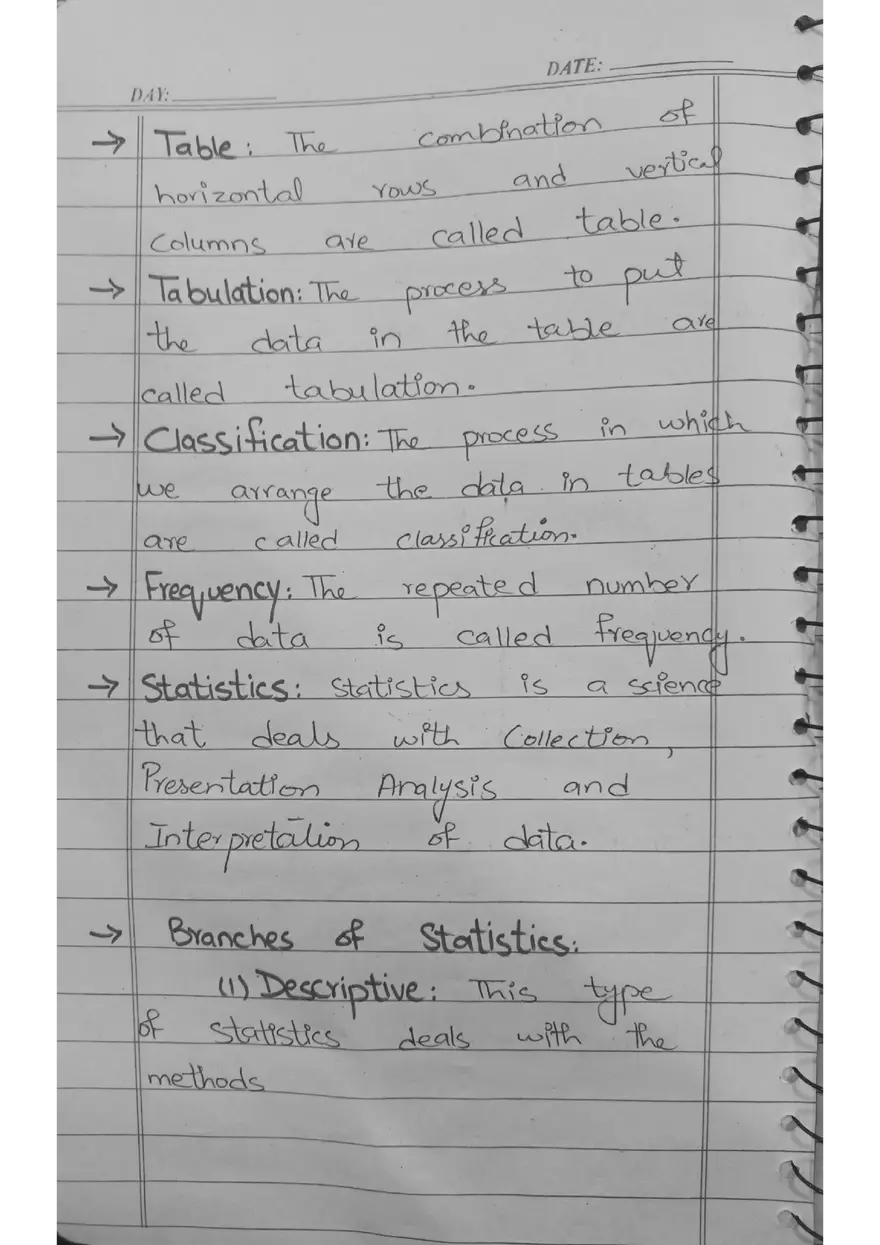 DATE:
DAY:
→ Table: The combination of
horizontal rows and vertical
Columns are called table.
→ Tabulation: The process to put
the data in the table are
called tabulation.
→ Classification: The process in which
we arrange the data in tables
are called classification.
→ Frequency: The repeated number
of data is called frequency.
→ Statistics: Statistics is a science
that deals with Collection,
Presentation Analysis and
Interpretation of data.
→ Branches of Statistics:
(1) Descriptive: This type
of statistics deals with the
methods